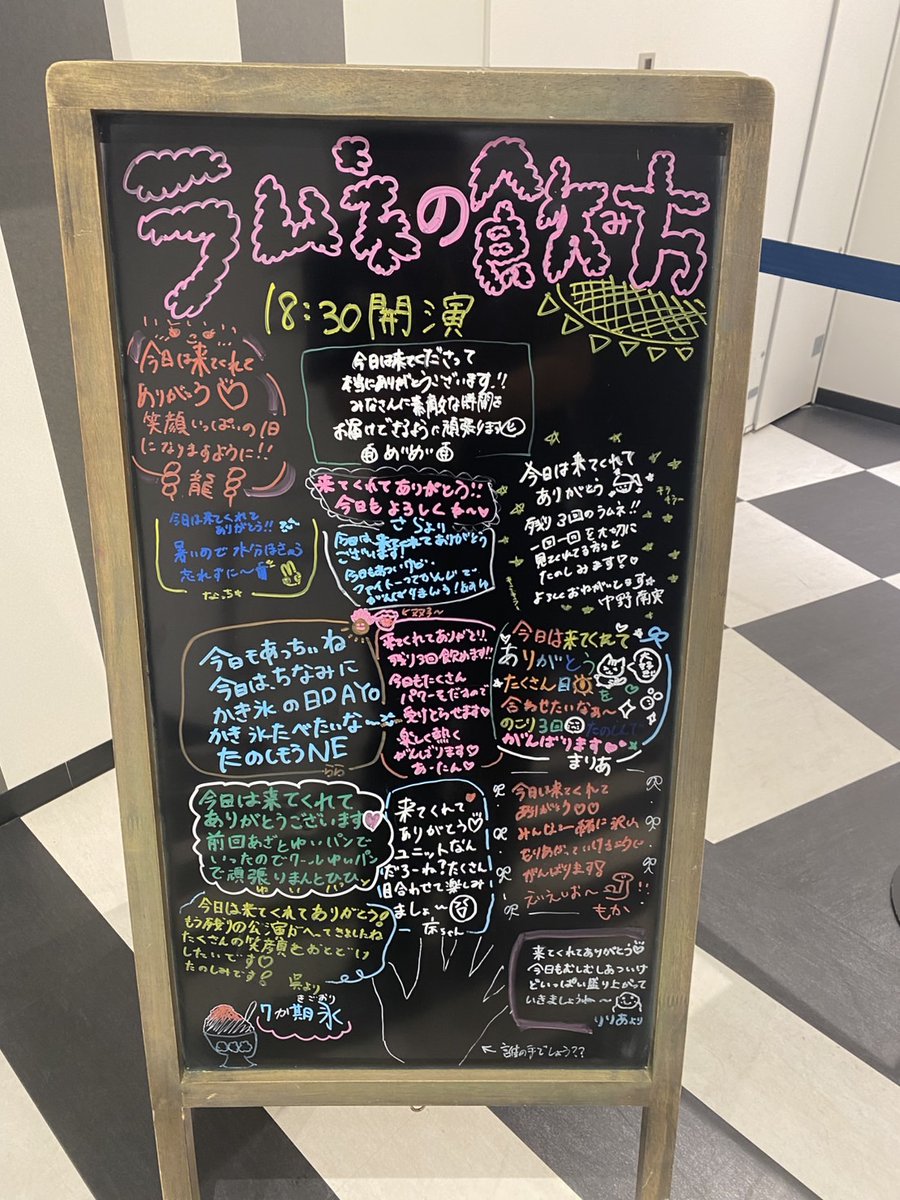 ラムネの飲み方
18:30開演
今日は来てくれて
ありがとう♡
笑顔いっぱいの1日
になりますように!!
龍
今日は来てくださって
本当にありがとうございます!!
みなさんに素敵な時間を
お届けできるように頑張ります
めいめい
来てくれてありがとう!!
今日もよろしくね〜♥
さらより
今日は来てくれて
ありがとう!!
暑いので水分ほきゅう
忘れずに〜
なっち
今日は来てくれてありがとう
ございます
今日もあついけど
ファイトーってかんじで
がんばりましょう!
今日は来てくれて
ありがとう
残り3回のラムネ!!
一回一回を大切に
見てくれてる方々と
たのしみます!
よろしくおねがいします☆
中野 南実
キラ
キラー
今日もあっちぃね
今日は、ちなみに
かき氷の日DAYo
かき氷たべたいな〜
たのしもうNE
らら
←双子〜
来てくれてありがと!!
残り3回飲めます!!
今日もたくさん
パワーそそぐので
受けとります♥
楽しく熱く
がんばります♥
あーたん♥
今日は来てくれて
ありがとう
たくさん目を
合わせたいなぁ〜
のこり3回 たのしんで
がんばります♥
まりあ
今日は来てくれて
ありがとうございます
前回あざとゆいパンで
いったのでクールゆいパン
で頑張りまんとひひ。
ゆいパン
来てくれて
ありがとう♡
ユニットなん
だろーね?たくさん
目合わせて楽しみ
ましょ〜
今日は来てくれて
ありがとう♡♡
みんなと一緒に沢山
もりあがっていけるように
がんばります!
えいえいお〜!!
もか
今日は来てくれてありがとう!
もう残りの公演がへってきましたね
たくさんの笑顔をおとどけ
したいです♡
たのしみです!
呉より
来てくれてありがとう♡
今日もむしむしあついけ
どいっぱい盛り上がって
いきましょうね〜
りりあより
きごおり
7か期氷
←誰の手でしょう??